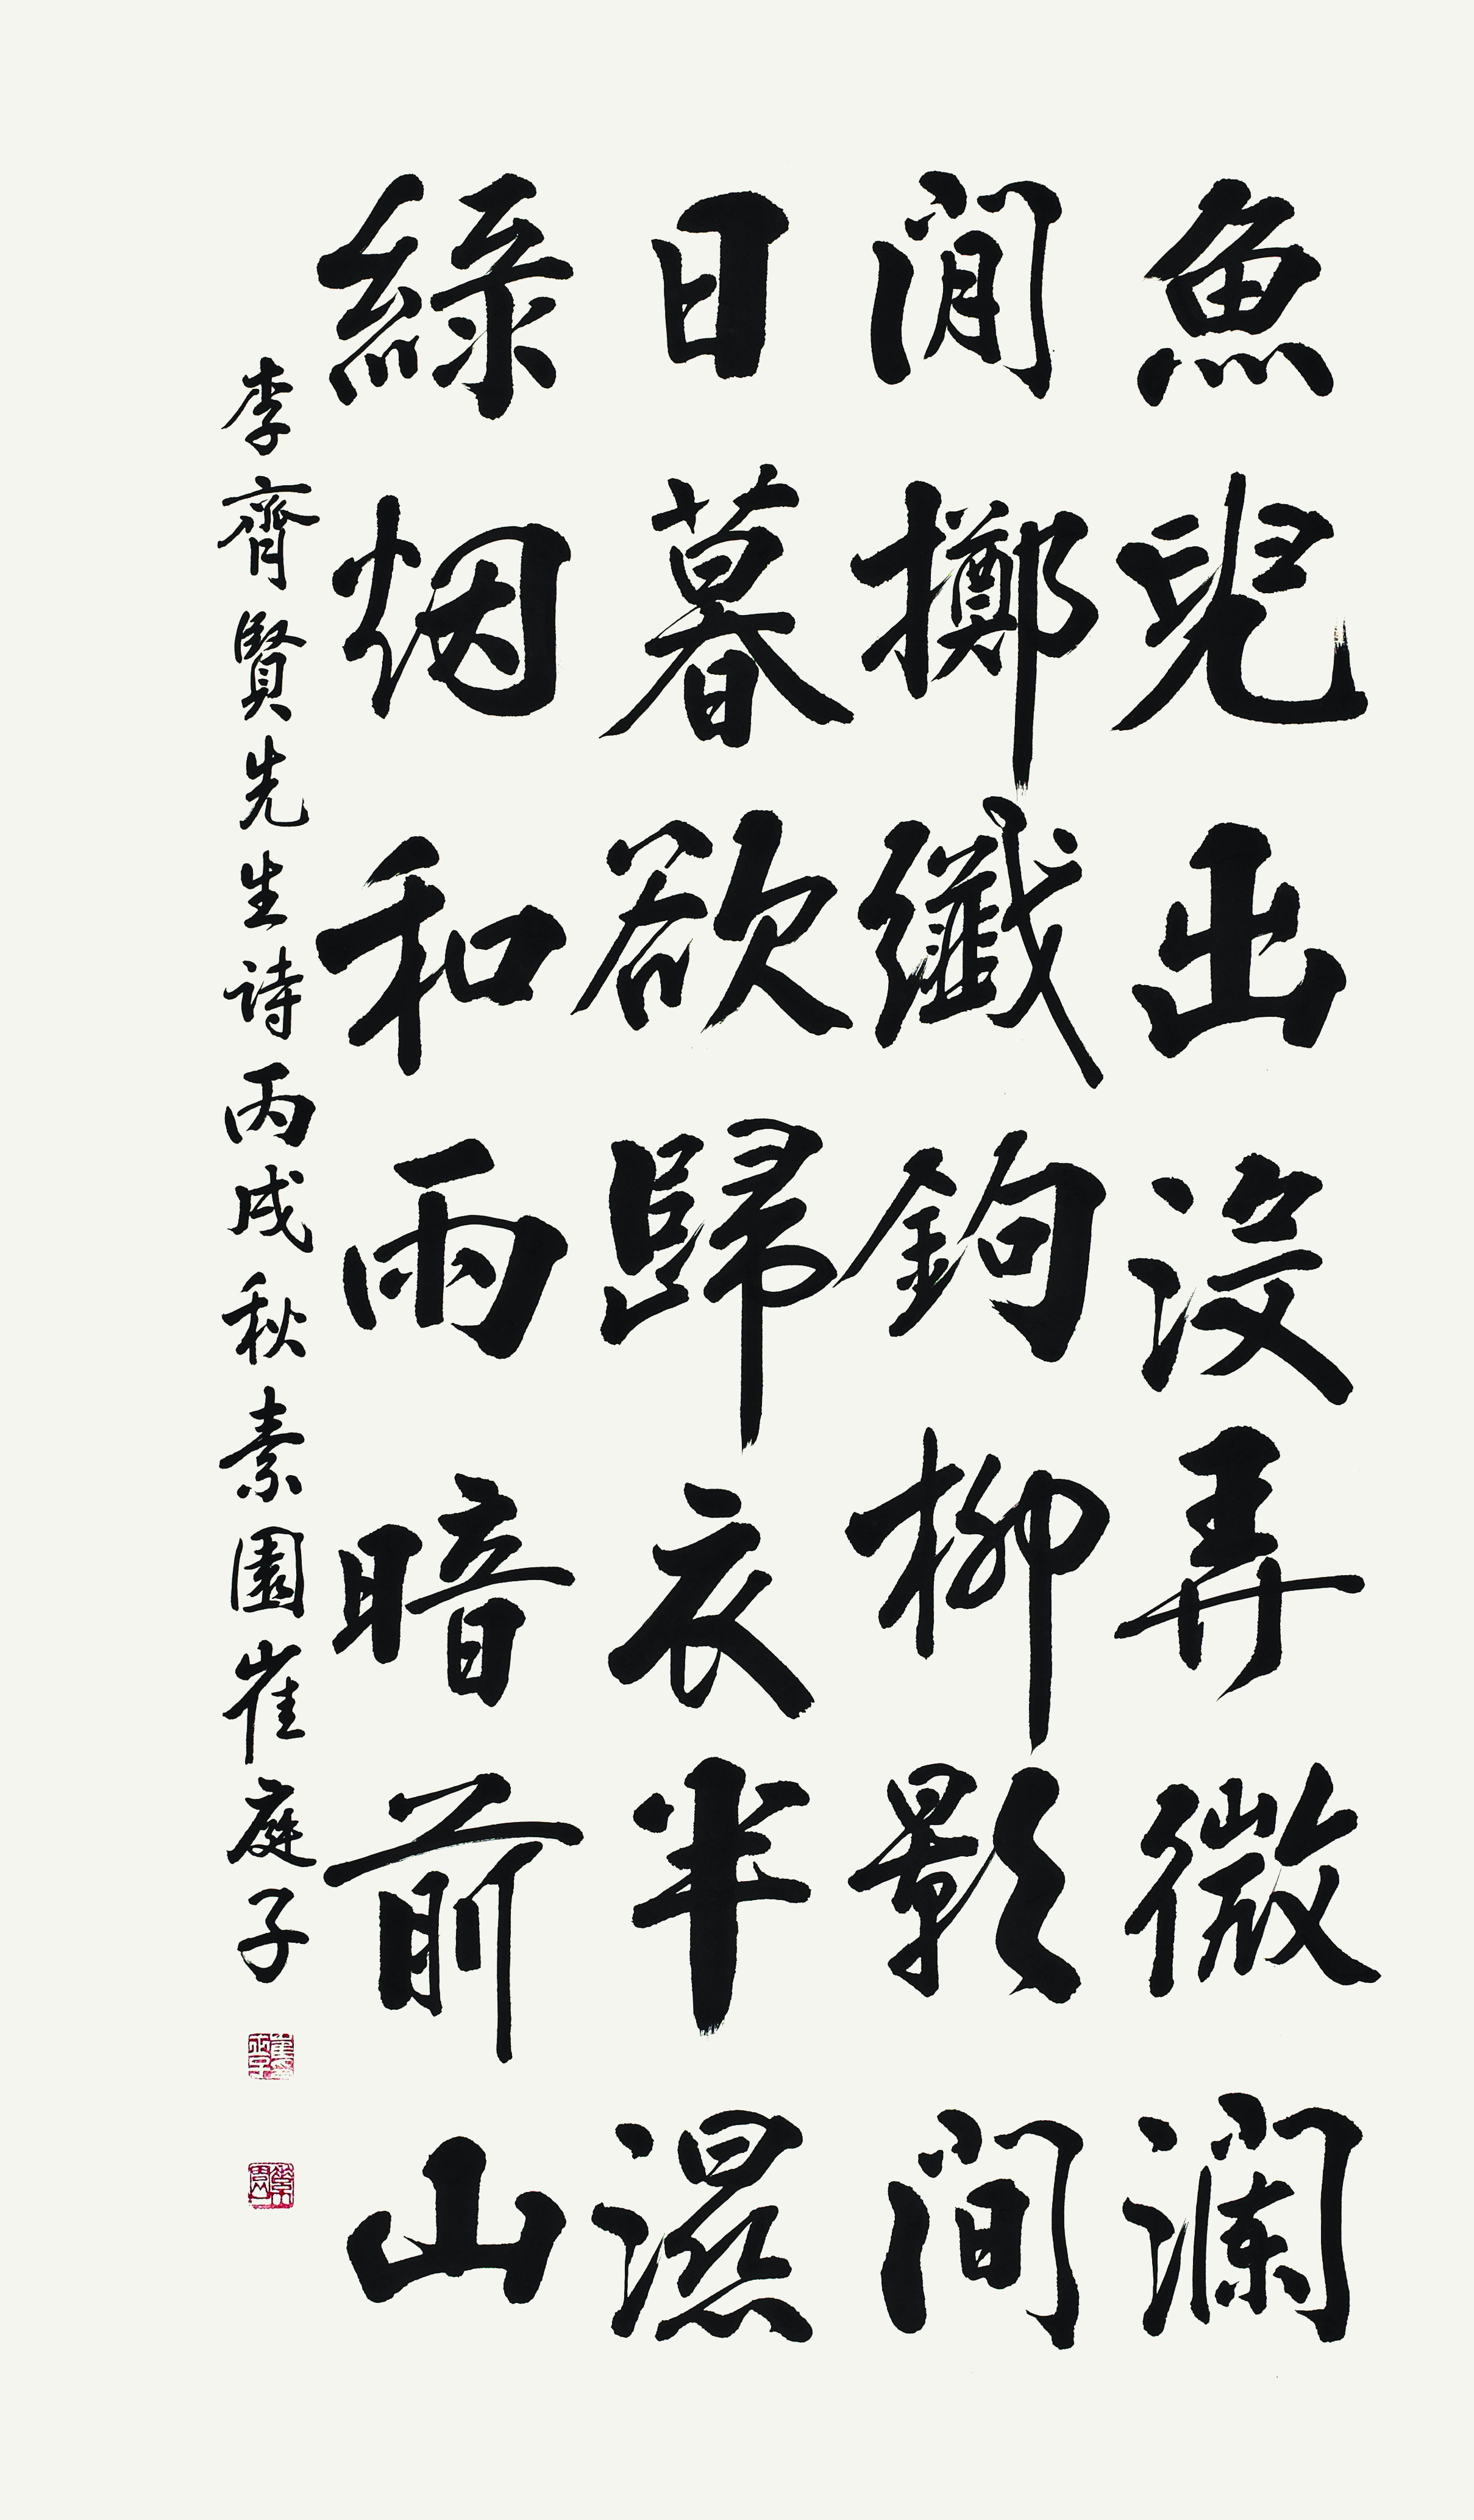 魚兒出沒弄微瀾
閒擲纖鉤柳影間
日暮欲歸衣半濕
綠烟和雨暗前山
李齊賢先生詩丙戌秋素園崔庭子